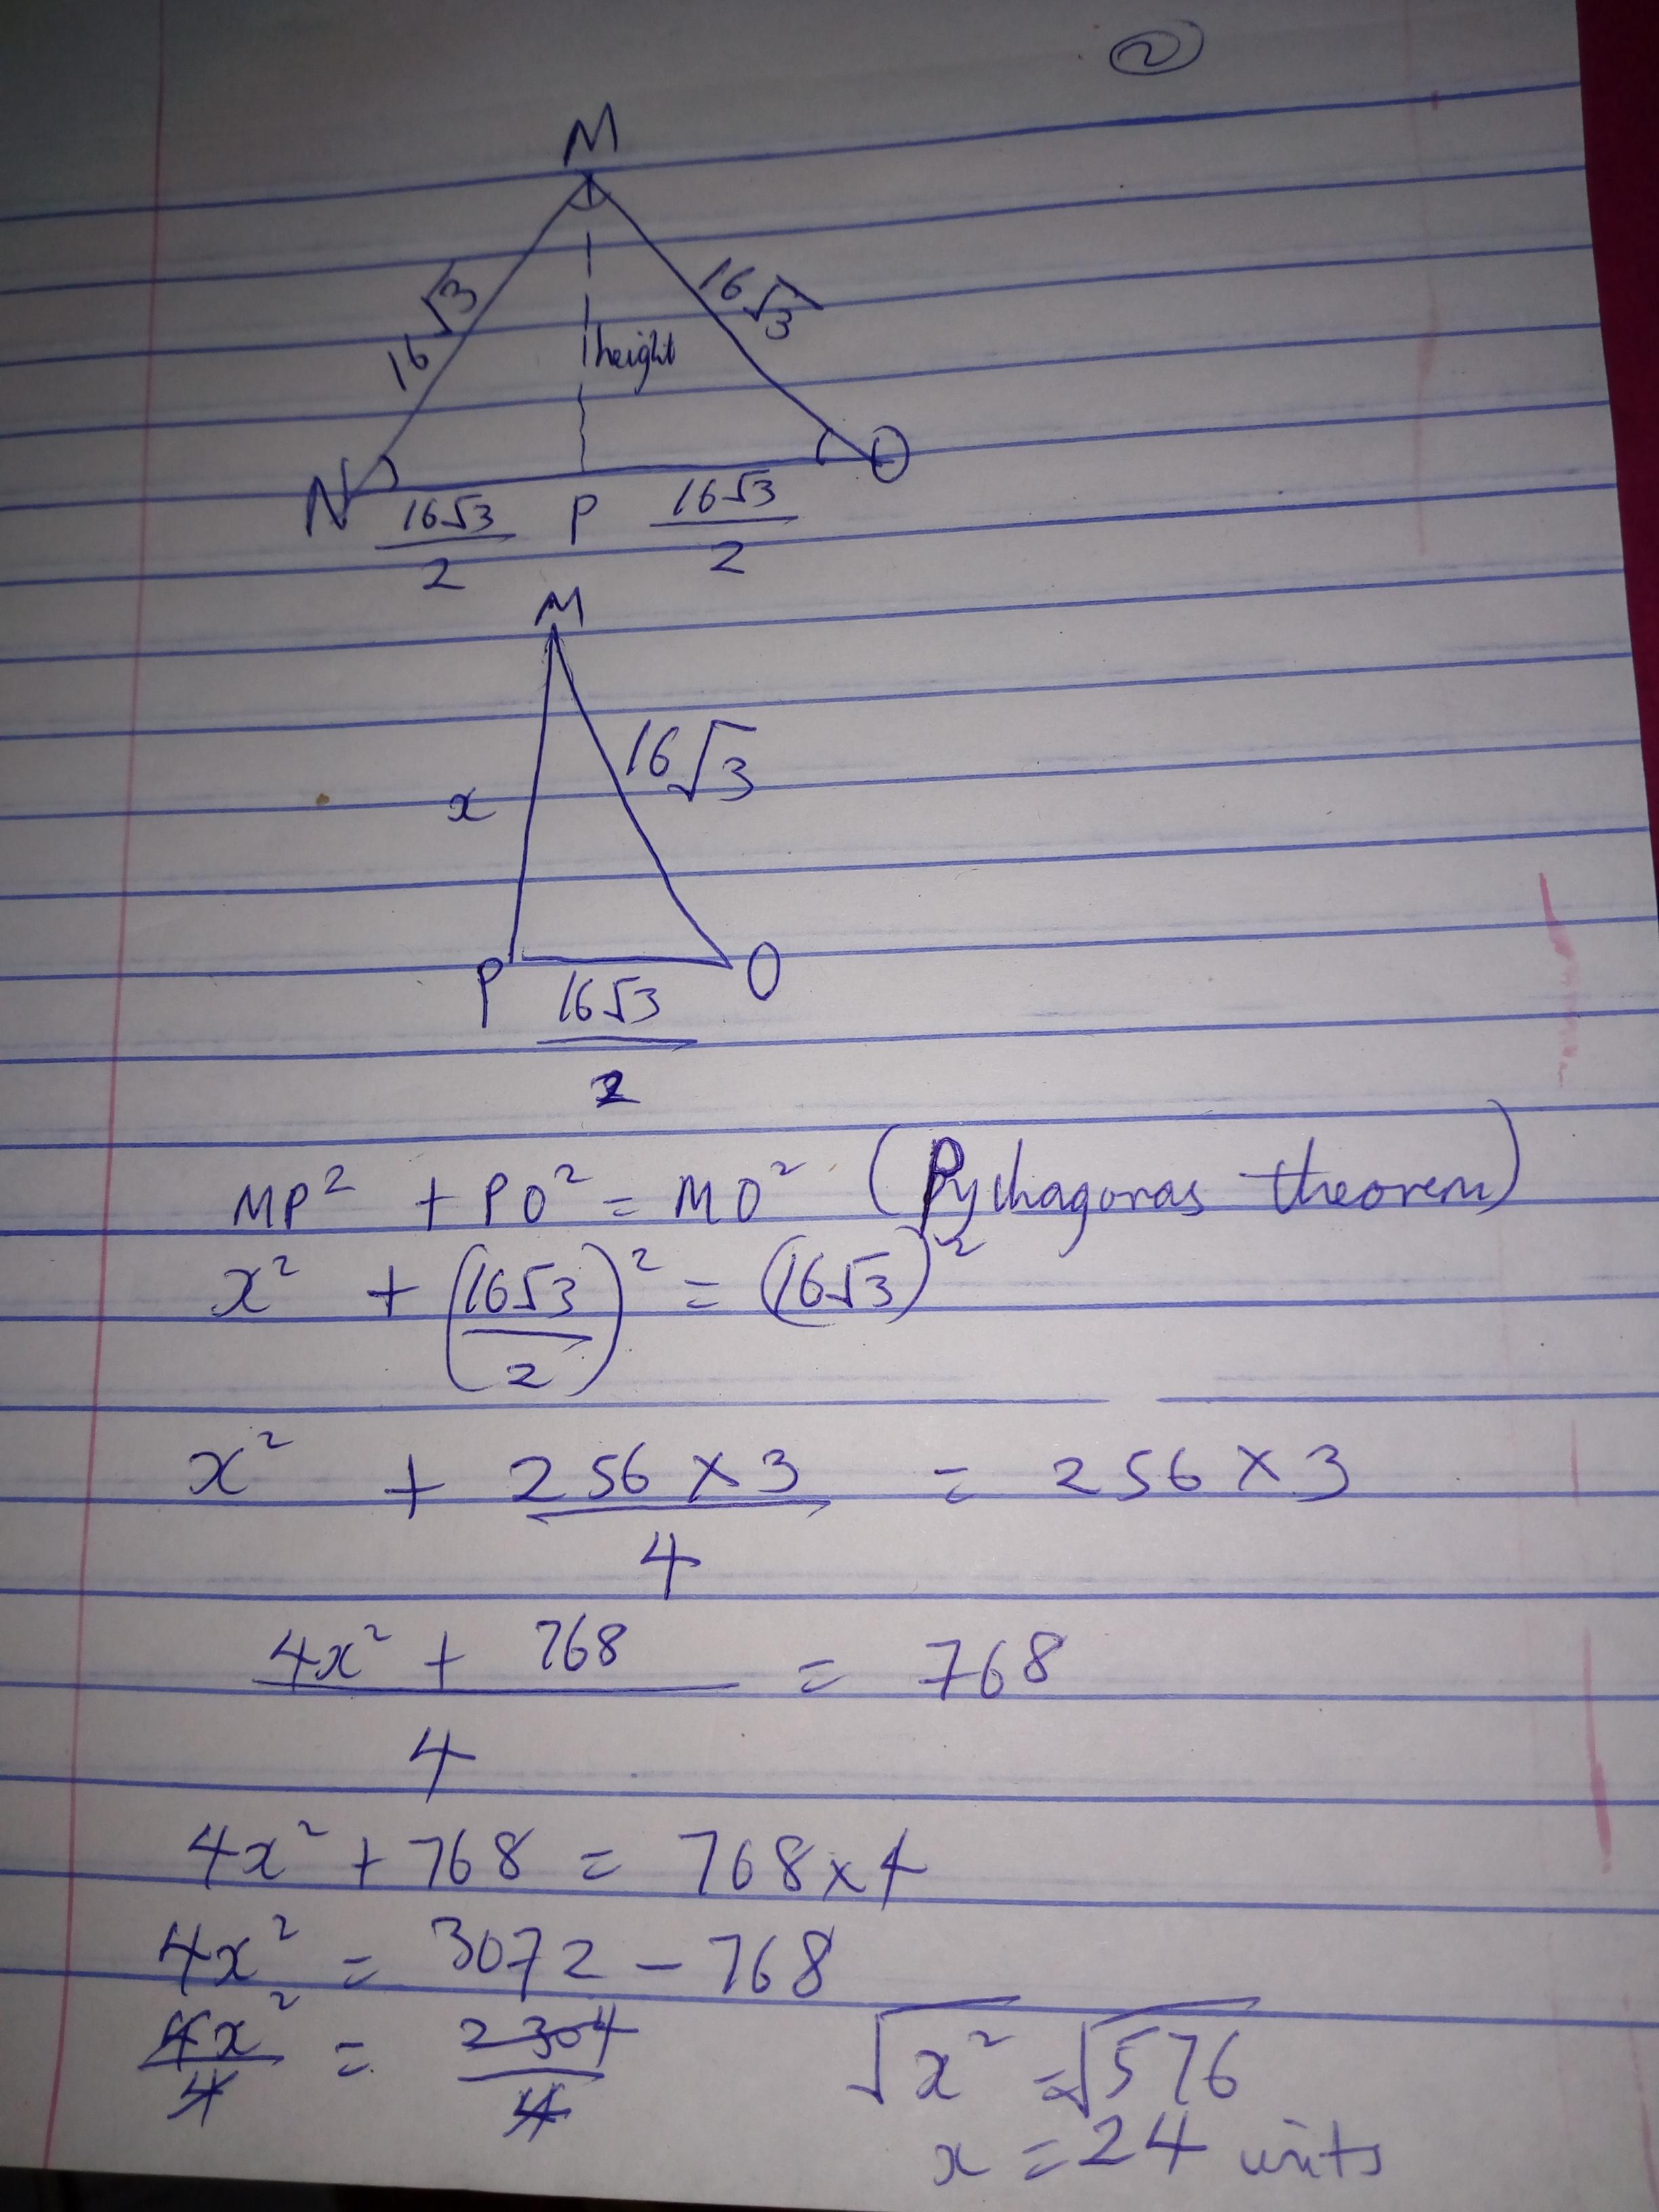 2
M
16√3
16√3
height
N
O
16√3/2
P
16√3/2
M
x
16√3
P
O
16√3/2
MP² + PO² = MO² (Pythagoras theorem)
x² + (16√3/2)² = (16√3)²
x² + 256 × 3/4 = 256 × 3
4x² + 768/4 = 768
4x² + 768 = 768 × 4
4x² = 3072 - 768
4x²/4 = 2304/4
√x² = √576
x = 24 units